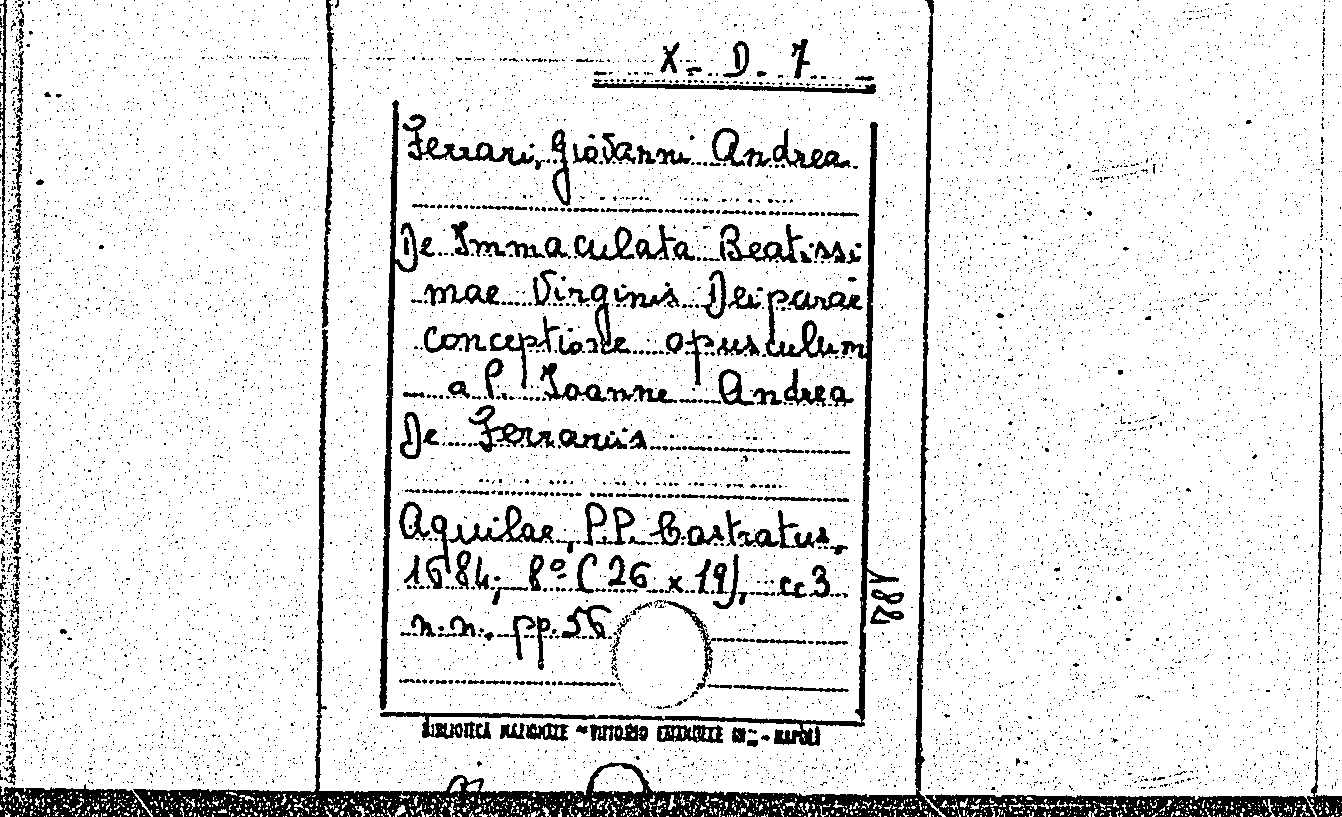 X. D. 7
Ferrari, Giovanni Andrea
De Immaculata Beatissi
mae Virginis Deiparae
conceptione opusculum
a P. Ioanne Andrea
De Ferrariis
Aquilae, P.P. Castratus,
1684; 8º (26 x 19), cc 3
n.n., pp. 56
188
BIBLIOTECA NAZIONALE - VITTORIO EMANUELE III - NAPOLI